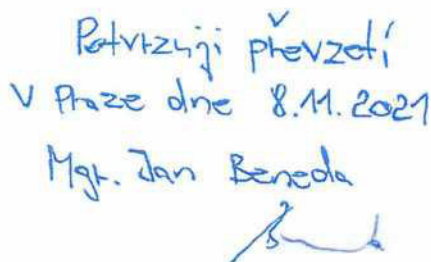 Potvrzuji převzetí
V Praze dne 8.11.2021
Mgr. Jan Beneda